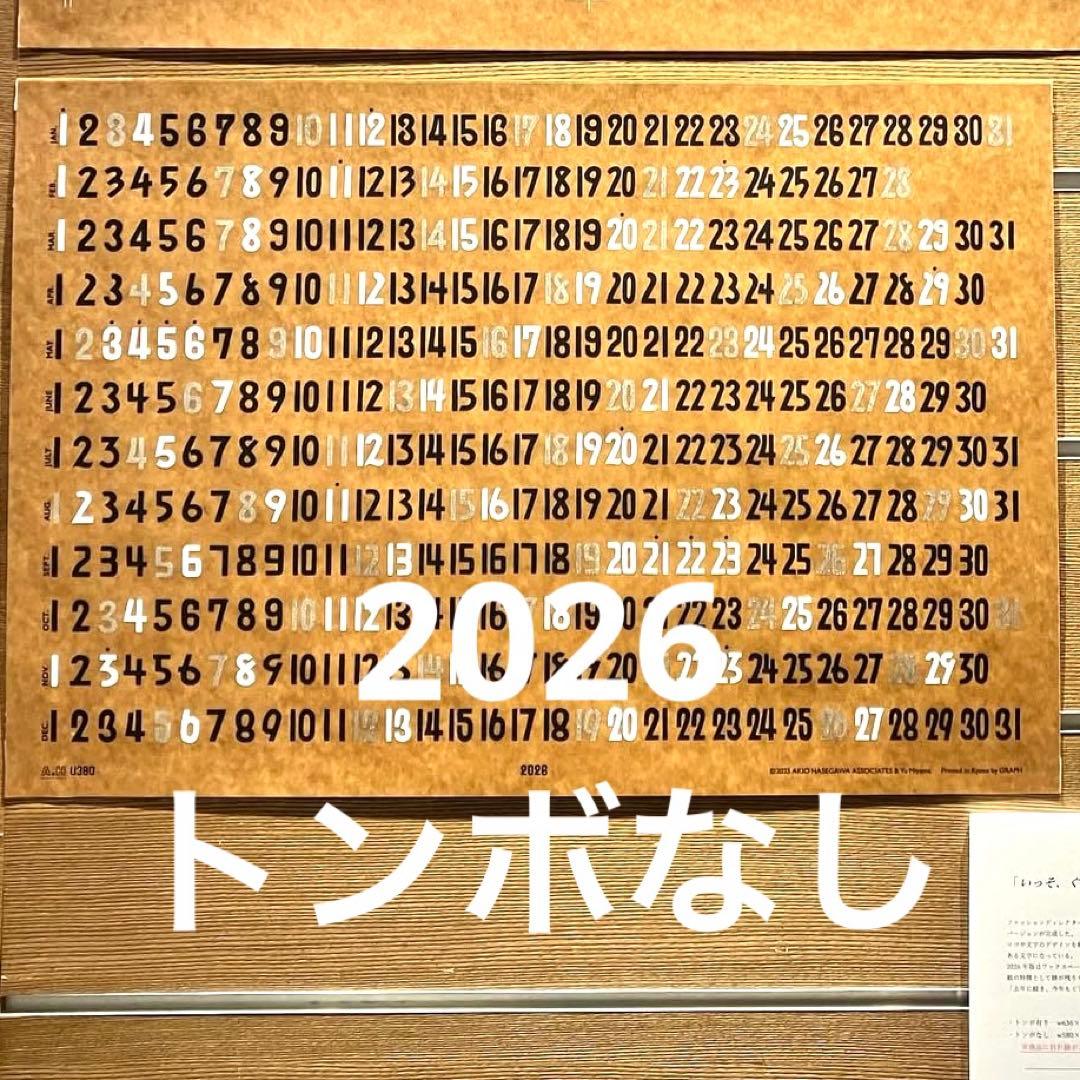 JAN. 1 2 3 4 5 6 7 8 9 10 11 12 13 14 15 16 17 18 19 20 21 22 23 24 25 26 27 28 29 30 31
FEB. 1 2 3 4 5 6 7 8 9 10 11 12 13 14 15 16 17 18 19 20 21 22 23 24 25 26 27 28
MAR. 1 2 3 4 5 6 7 8 9 10 11 12 13 14 15 16 17 18 19 20 21 22 23 24 25 26 27 28 29 30 31
APR. 1 2 3 4 5 6 7 8 9 10 11 12 13 14 15 16 17 18 19 20 21 22 23 24 25 26 27 28 29 30
MAY 1 2 3 4 5 6 7 8 9 10 11 12 13 14 15 16 17 18 19 20 21 22 23 24 25 26 27 28 29 30 31
JUNE 1 2 3 4 5 6 7 8 9 10 11 12 13 14 15 16 17 18 19 20 21 22 23 24 25 26 27 28 29 30
JULY 1 2 3 4 5 6 7 8 9 10 11 12 13 14 15 16 17 18 19 20 21 22 23 24 25 26 27 28 29 30 31
AUG. 1 2 3 4 5 6 7 8 9 10 11 12 13 14 15 16 17 18 19 20 21 22 23 24 25 26 27 28 29 30 31
SEPT. 1 2 3 4 5 6 7 8 9 10 11 12 13 14 15 16 17 18 19 20 21 22 23 24 25 26 27 28 29 30
OCT. 1 2 3 4 5 6 7 8 9 10 11 12 13 14 15 16 17 18 19 20 21 22 23 24 25 26 27 28 29 30 31
NOV. 1 2 3 4 5 6 7 8 9 10 11 12 13 14 15 16 17 18 19 20 21 22 23 24 25 26 27 28 29 30
DEC. 1 2 3 4 5 6 7 8 9 10 11 12 13 14 15 16 17 18 19 20 21 22 23 24 25 26 27 28 29 30 31
2026
A.H U380 2026 ©2025 AKIO HASEGAWA ASSOCIATES & Yu Miyama Printed in Kyoto by GRAPH
トンボなし
「いっそ、ぐ
ファッションディレクタ
バージョンが完成した。
ある文字になっている。
・トンボ有り
・トンボなし